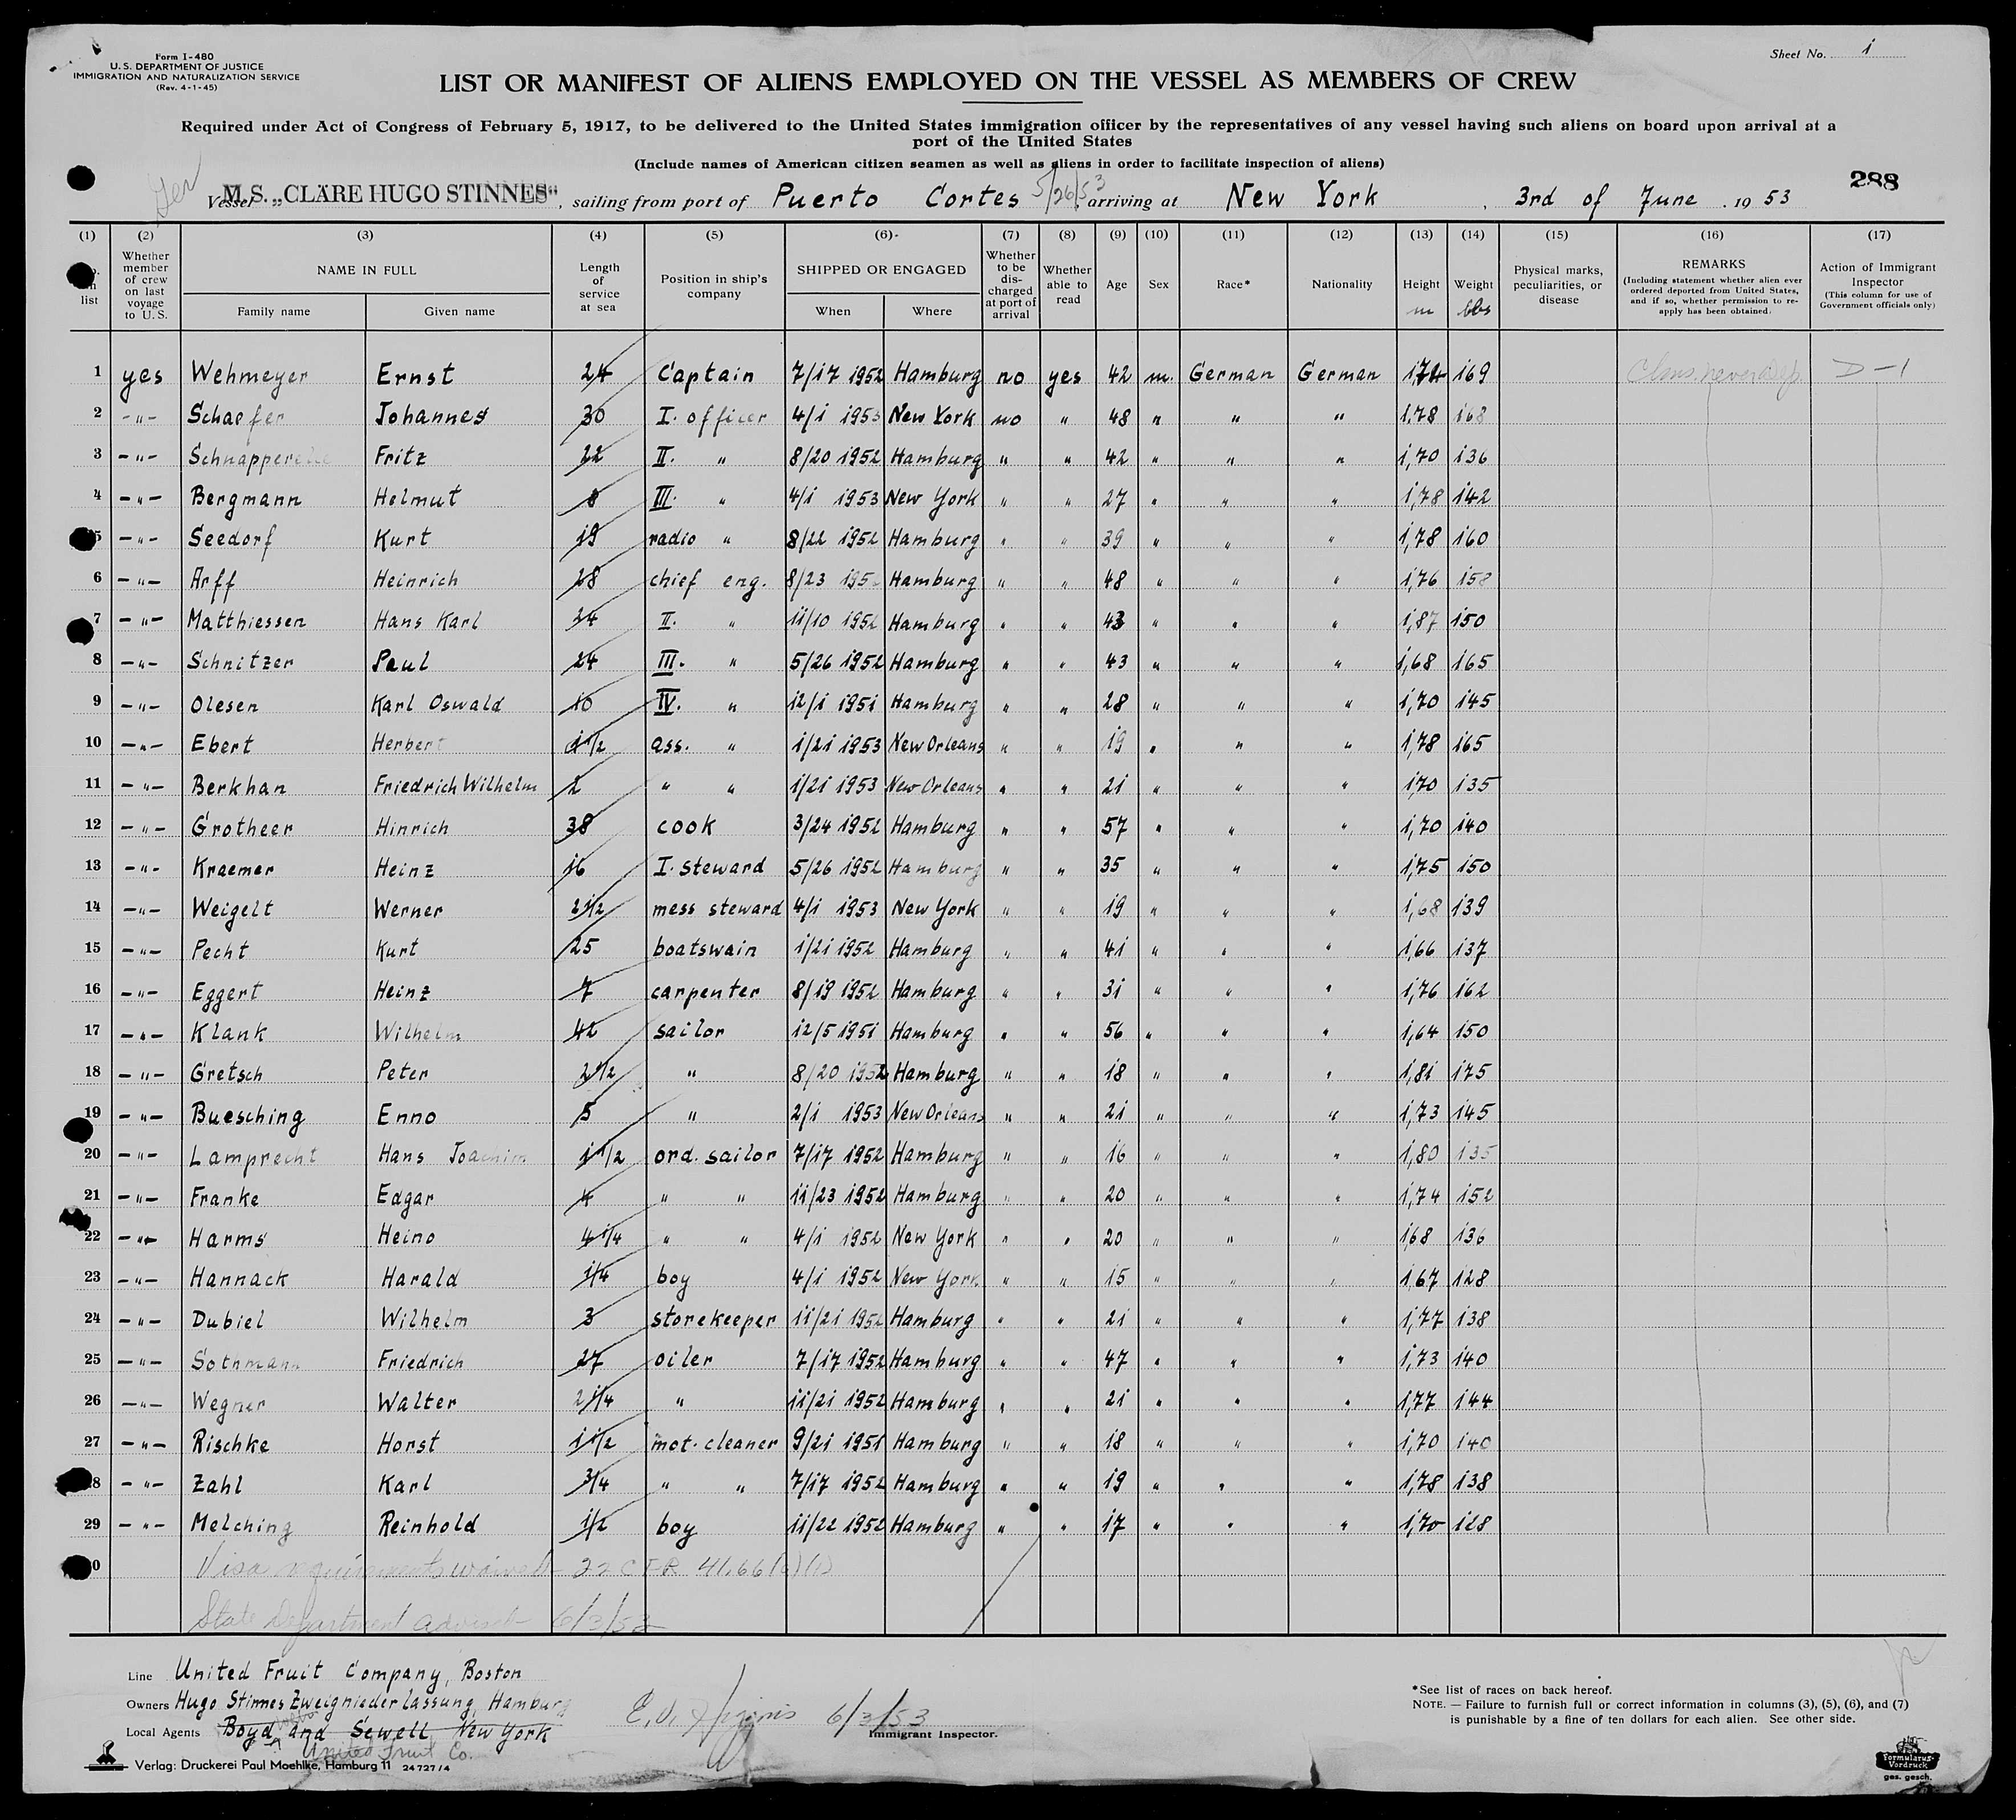 Form I-480
U. S. DEPARTMENT OF JUSTICE
IMMIGRATION AND NATURALIZATION SERVICE
(Rev. 4-1-45)
Sheet No. 1
LIST OR MANIFEST OF ALIENS EMPLOYED ON THE VESSEL AS MEMBERS OF CREW
Required under Act of Congress of February 5, 1917, to be delivered to the United States immigration officer by the representatives of any vessel having such aliens on board upon arrival at a
port of the United States
(Include names of American citizen seamen as well as aliens in order to facilitate inspection of aliens)
288
Ger
Vessel M.S. „CLÄRE HUGO STINNES“, sailing from port of Puerto Cortes 5/26/53, arriving at New York, 3rd of June, 1953
(1) (2) (3) (4) (5) (6) (7) (8) (9) (10) (11) (12) (13) (14) (15) (16) (17)
list | Whether member of crew on last voyage to U. S. | NAME IN FULL Family name Given name | Length of service at sea | Position in ship's company | SHIPPED OR ENGAGED When Where | Whether to be discharged at port of arrival | Whether able to read | Age | Sex | Race* | Nationality | Height m | Weight lbs | Physical marks, peculiarities, or disease | REMARKS (Including statement whether alien ever ordered deported from United States, and if so, whether permission to re-apply has been obtained. | Action of Immigrant Inspector (This column for use of Government officials only)
1 yes Wehmeyer Ernst 24 Captain 7/17 1952 Hamburg no yes 42 m. German German 1,74 169 Clms. never dep. D-1
2 -"- Schaefer Johannes 30 I. officer 4/1 1953 New York no " 48 " " " 1,78 168
3 -"- Fritz 22 II. " 8/20 1952 Hamburg " " 42 " " " 1,70 136
4 -"- Bergmann Helmut 8 III. " 4/1 1953 New York " " 27 " " " 1,78 142
5 -"- Seedorf Kurt 19 radio " 8/22 1952 Hamburg " " 39 " " " 1,78 160
6 -"- Arff Heinrich 28 chief eng. 8/23 195 Hamburg " " 48 " " " 1,76 158
7 -"- Matthiessen Hans Karl 24 II. " 11/10 1952 Hamburg " " 43 " " " 1,87 150
8 -"- Schnitzer Paul 24 III. " 5/26 1952 Hamburg " " 43 " " " 1,68 165
9 -"- Olesen Karl Oswald 10 IV. " 12/1 1951 Hamburg " " 28 " " " 1,70 145
10 -"- Ebert Herbert 1 1/2 ass. " 1/21 1953 New Orleans " " 19 " " " 1,78 165
11 -"- Berkhan Friedrich Wilhelm 2 " " 1/21 1953 New Orleans " " 21 " " " 1,70 135
12 -"- Grotheer Hinrich 38 cook 3/24 1952 Hamburg " " 57 " " " 1,70 140
13 -"- Kraemer Heinz 16 I. steward 5/26 1952 Hamburg " " 35 " " " 1,75 150
14 -"- Weigelt Werner 2 1/2 mess steward 4/1 1953 New York " " 19 " " " 1,68 139
15 -"- Pecht Kurt 25 boatswain 1/21 1952 Hamburg " " 41 " " " 1,66 137
16 -"- Eggert Heinz 7 carpenter 8/19 1952 Hamburg " " 31 " " " 1,76 162
17 -"- Klank Wilhelm 42 sailor 12/5 1951 Hamburg " " 56 " " " 1,64 150
18 -"- Gretsch Peter 2 1/2 " 8/20 1952 Hamburg " " 18 " " " 1,81 175
19 -"- Buesching Enno 5 " 2/1 1953 New Orleans " " 21 " " " 1,73 145
20 -"- Lamprecht Hans Joachim 1 1/2 ord. sailor 7/17 1952 Hamburg " " 16 " " " 1,80 135
21 -"- Franke Edgar 4 " " 11/23 1952 Hamburg " " 20 " " " 1,74 152
22 -"- Harms Heino 4 1/4 " " 4/1 1952 New York " " 20 " " " 1,68 136
23 -"- Hannack Harald 1/4 boy 4/1 1952 New York " " 15 " " " 1,67 128
24 -"- Dubiel Wilhelm 3 storekeeper 11/21 1952 Hamburg " " 21 " " " 1,77 138
25 -"- Sothmann Friedrich 27 oiler 7/17 1952 Hamburg " " 47 " " " 1,73 140
26 -"- Wegner Walter 2 1/4 " 11/21 1952 Hamburg " " 21 " " " 1,77 144
27 -"- Rischke Horst 1 1/2 mot. cleaner 9/21 1951 Hamburg " " 18 " " " 1,70 140
28 -"- Zahl Karl 3/4 " " 7/17 1952 Hamburg " " 19 " " " 1,78 138
29 -"- Melching Reinhold 1/2 boy 11/22 1952 Hamburg " " 17 " " " 1,70 128
30 Visa requirements waived - 22 CFR 41.66
State Department advised 6/3/53
Line United Fruit Company, Boston
Owners Hugo Stinnes Zweigniederlassung, Hamburg
Local Agents Boyd and Sewell New York
United Fruit Co.
6/3/53
Immigrant Inspector.
*See list of races on back hereof.
NOTE. — Failure to furnish full or correct information in columns (3), (5), (6), and (7)
is punishable by a fine of ten dollars for each alien. See other side.
Verlag: Druckerei Paul Moehlke, Hamburg 11 24727/4
Formularus-
Vordruck
ges. gesch.